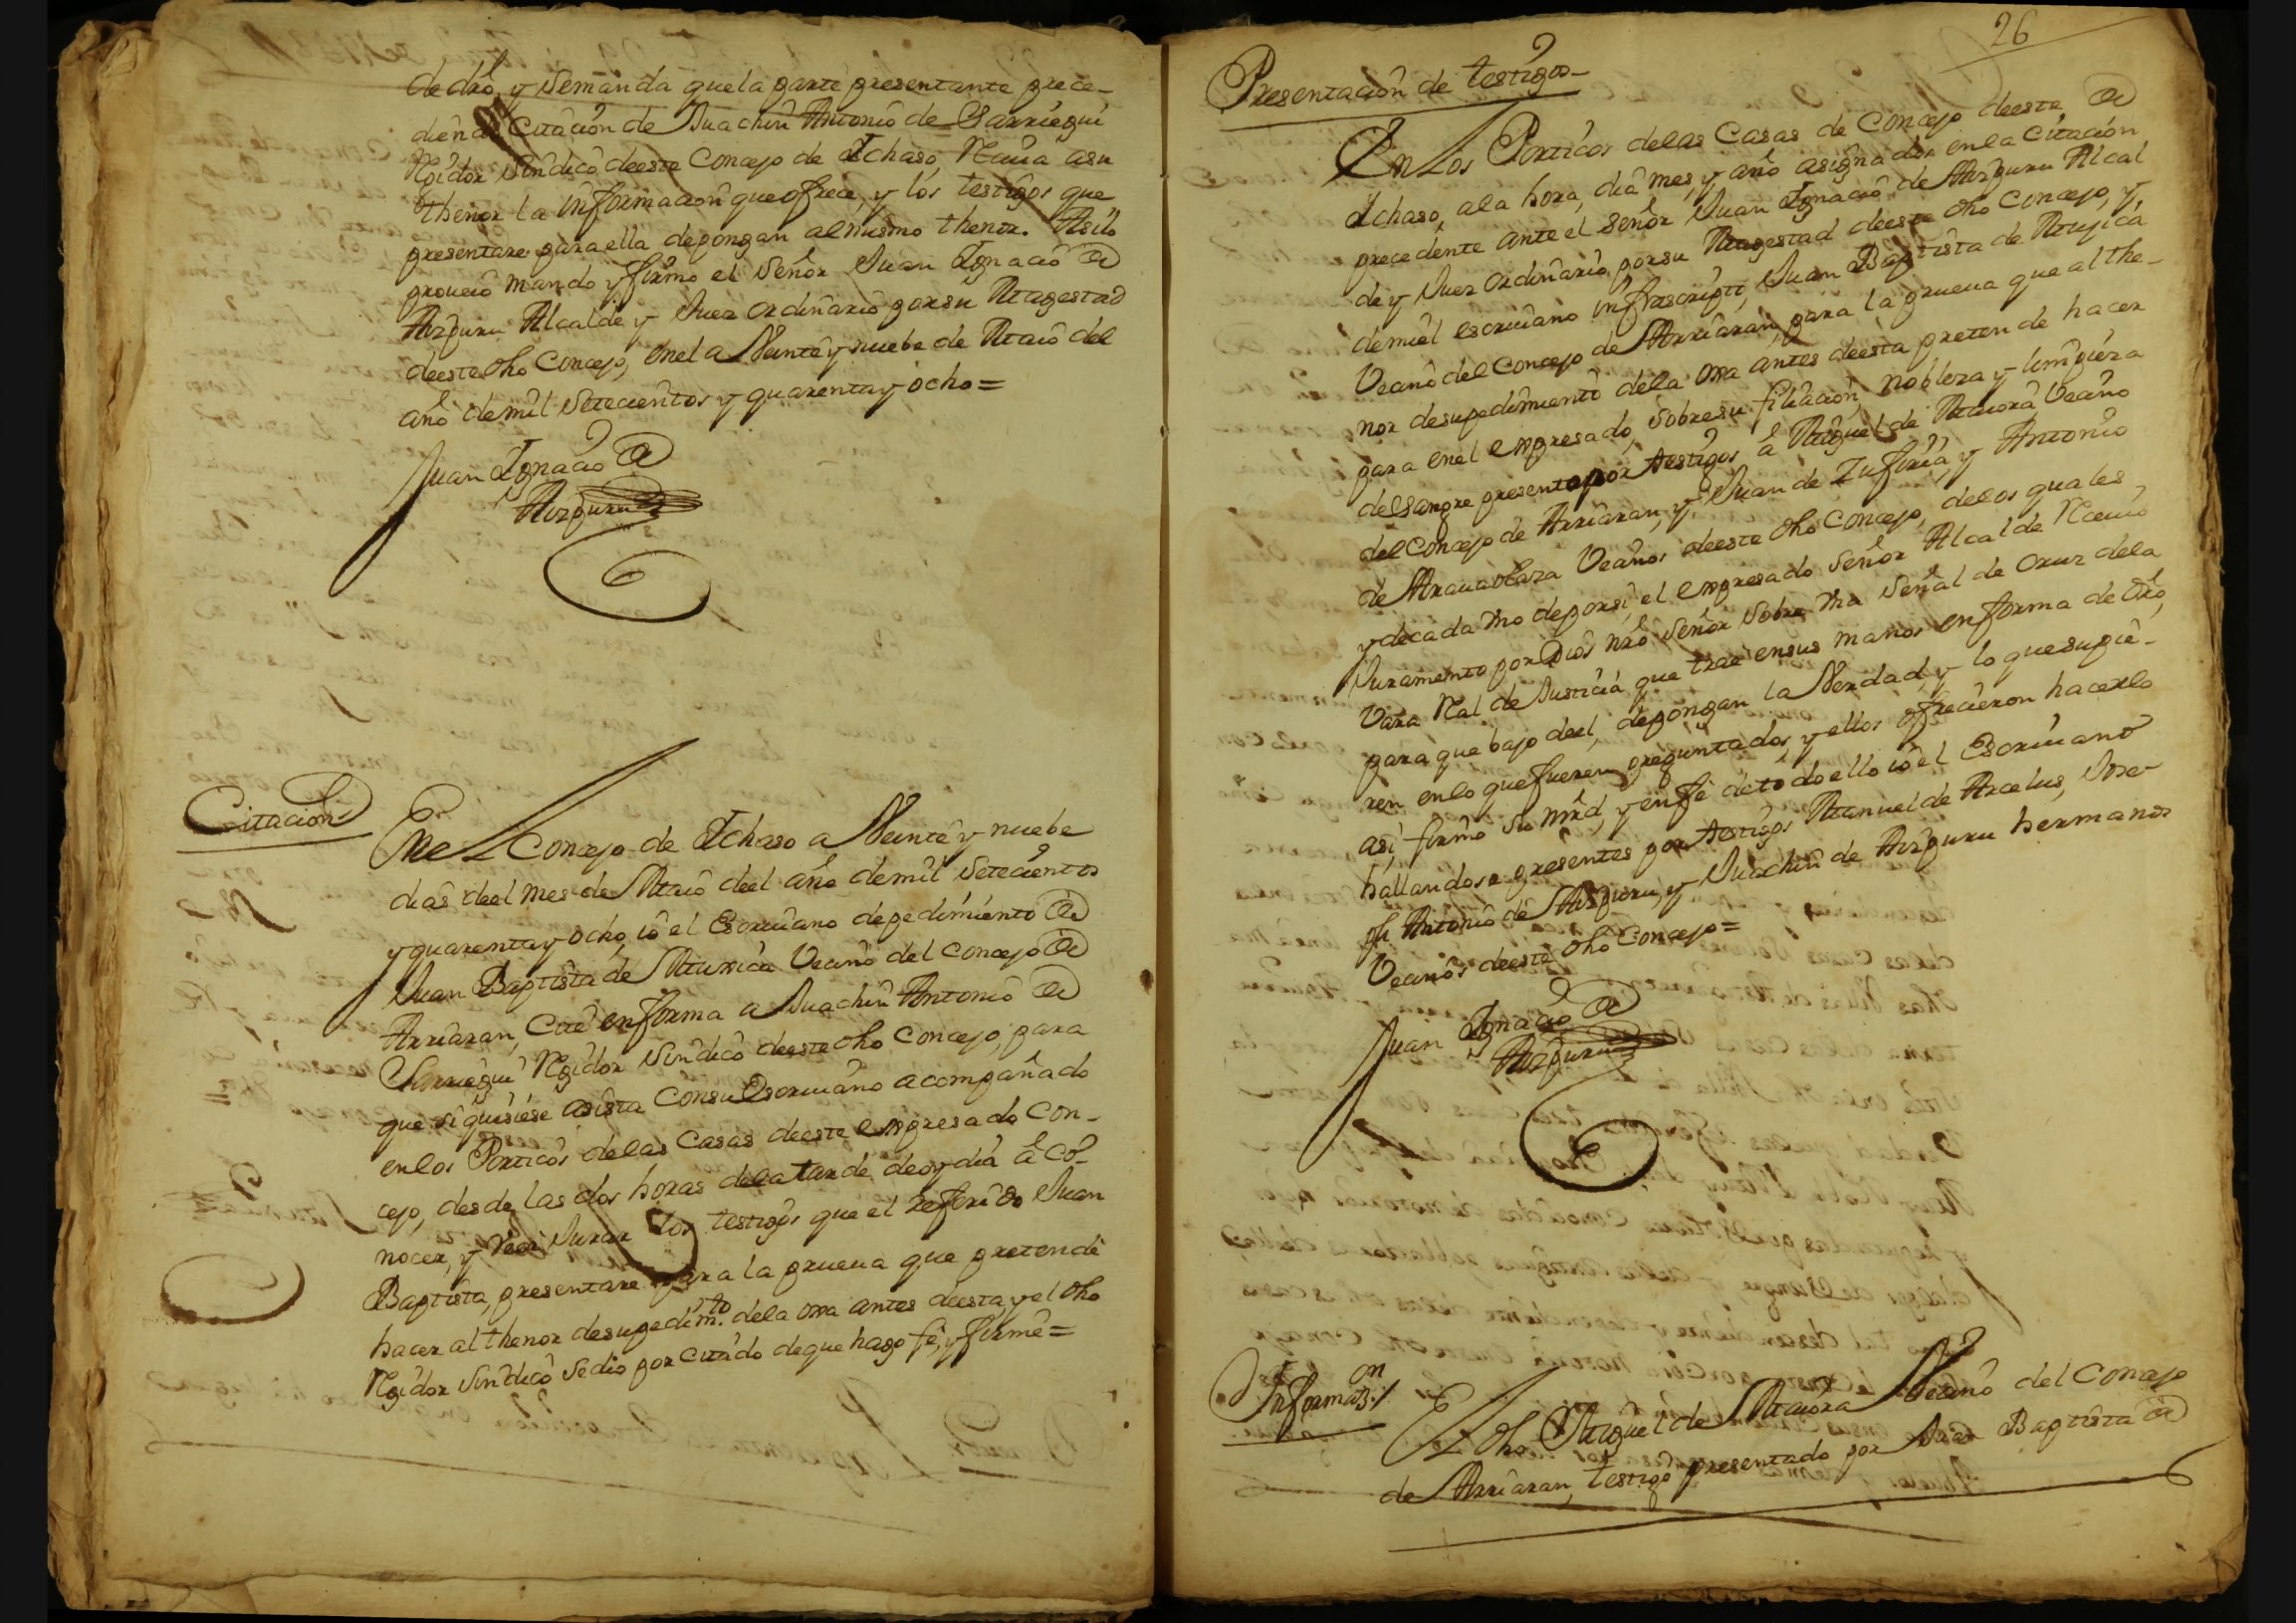 de dro, y Se manda que la parte presentante prece-
diendo Citacion de Juachin Antonio de Sarriegui
Rexidor Sindico de este Concejo de Ichaso, Reciva a su
thenor la informacion que ofrece, y los testigos que
presentare para ella depongan al mismo thenor. Asi lo
proueio mando y firmo el Señor Juan Ignacio de
Aizpuru Alcalde y Juez ordinario por su Magestad
de este dho Concejo, en el a Veinte y nuebe de Maio del
año de mil Setecientos y quarenta y ocho =
Juan Ignacio de
Aizpuru
Citacion
En el Concejo de Ichaso a Veinte y nuebe
dias de el mes de Maio de el año de mil Setecientos
y quarenta y ocho, io el Escriuano de pedimiento de
Juan Baptista de Muxica Vecino del Concejo de
Arriaran, Cite en forma a Juachin Antonio de
Sarriegui Rexidor Sindico de este dho Concejo, para
que si quisiese asista con su Escriuano acompañado
en los Porticos de las Casas de este expresado Con-
cejo, desde las dos horas de la tarde de oy dia â co-
nocer, y Veer Jurar los testigos que el referido Juan
Baptista, presentare para la prueua que pretende
hacer al thenor de su pedim.to de la ora antes de esta, y el dho
Rexidor Sindico se dio por citado de que hago fe, y firme =
26
Presentacion de testigos
En Los Porticos de las Casas de Concejo de este de
Ichaso, a la hora, dia mes, y año asignados en la Citacion
precedente ante el Señor Juan Ignacio de Aizpuru Alcal
de y Juez ordinario por su Magestad de este dho Concejo, y
de mi el escriuano infrascripto, Juan Baptista de Mugica
Vecino del Concejo de Arriaran, para la prueua que al the-
nor de su pedimiento de la ora antes de esta pretende hacer
para en el expresado, sobre su filiacion, nobleza y limpieza
de Sangre presento por testigos â Miguel de Maiora Vecino
del Concejo de Arriaran, y Juan de Zufiria, y Antonio
de Arauaolaza Vecinos de este dho Concejo, de los quales,
y de cada Vno de por si, el expresado Señor Alcalde Reciuio
Juramento por Dios nro Señor Sobre Vna Señal de Cruz de la
Vara Real de Justicia que trae en sus manos en forma de dro,
para que bajo de el, depongan la Verdad, y lo que supie-
ren en lo que fueren preguntados, y ellos ofrecieron hacerlo
asi, firmo Su mrd, y en fe de todo ello io el Escriuano
hallandose presentes por testigos Manuel de Arcelus, Jose-
ph Antonio de Aizpuru, y Juachin de Aizpuru hermanos
Vecinos de este dho Concejo =
Juan Ignacio de
Aizpuru
Informaz.on
El dho Miguel de Maiora Vecino del Concejo
de Arriaran, testigo presentado por Juan Baptista de